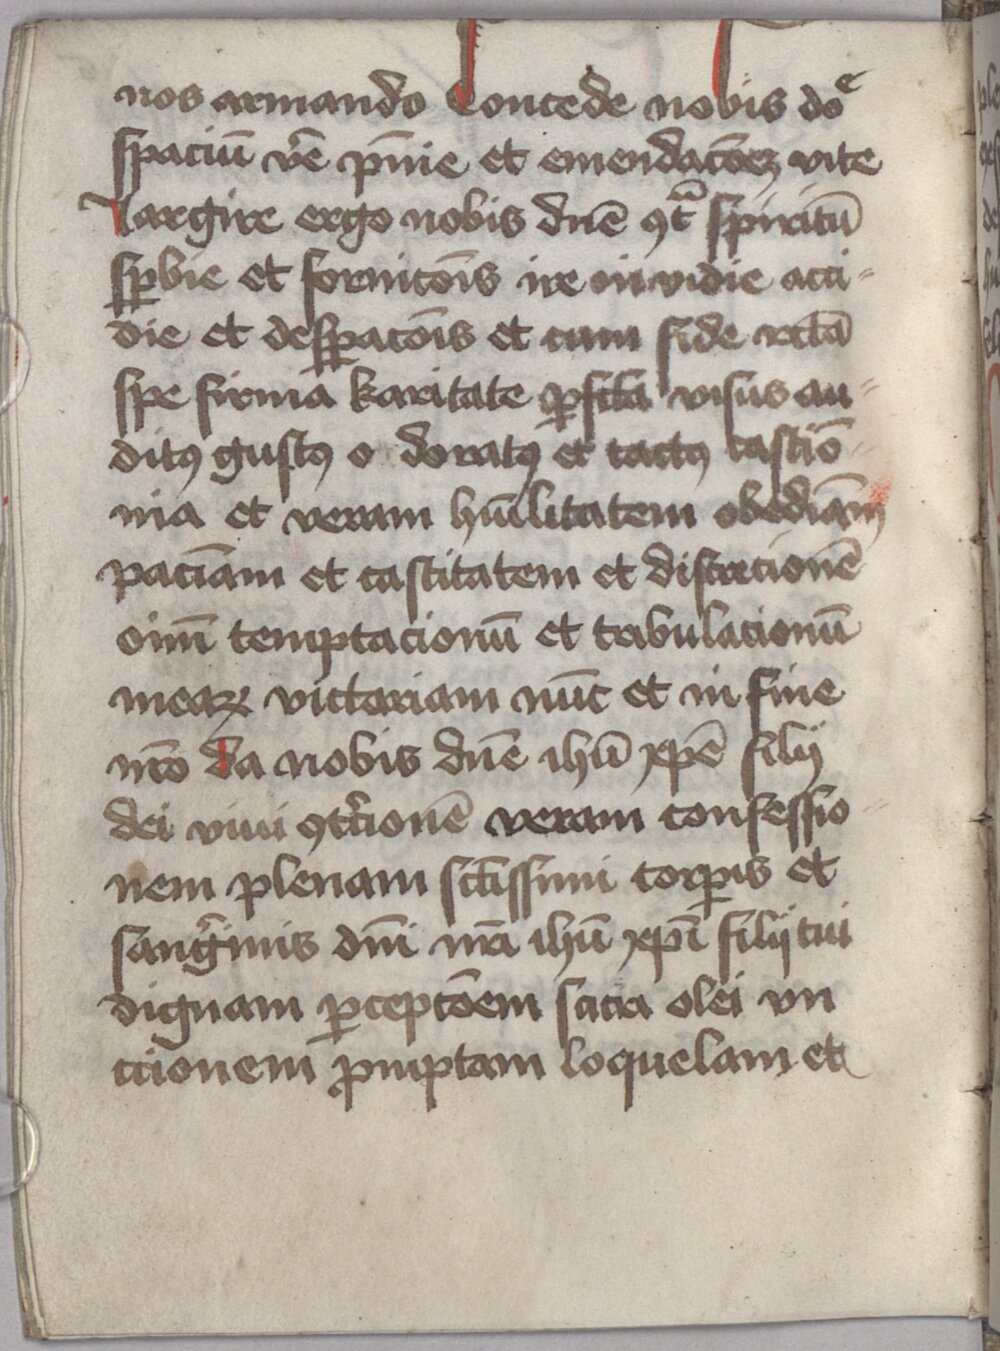 nos armando Concede nobis doe
spaciū v̄e pn̄ie et emendacōeꝫ vite
largire ergo nobis dn̄e ꝯt̄ spiritū
suꝑbie et fornicōis ire invidie acci-
die et desꝑacōis et cum fide rectā
spe firma karitate ꝑfcta visus au-
ditꝯ gustꝯ o doratꝯ et tactꝯ castio-
nia et veram hūilitatem obediam̄
paciam̄ et castitatem et discrecionē
oīm temptacionū et tribulacionū
mearꝝ victoriam nūc et in fine
mēo da nobis dn̄e ihū xpē filij
dei viui ꝯt̄cionē veram confessio-
nem plenam sctissimi corꝑis et
sangͥinis dn̄i nr̄i ihū xp̄i filij tui
dignam ꝑcepcōem sacri olei vn
ccionem ꝓmptam loquelam et